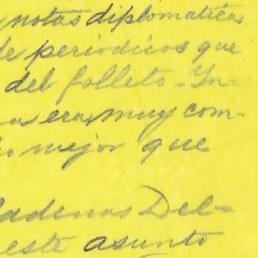 notas diplomaticas
de periodicos que
del folleto - In-
as era, muy com-
mejor que
Cadenas Del-
este asunto